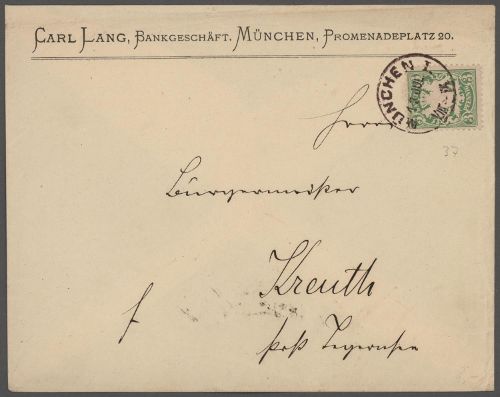 CARL LANG, BANKGESCHÄFT, MÜNCHEN, PROMENADEPLATZ 20.
MÜNCHEN I
37
Herrn
Bürgermeister
Kreuth
Post Tegernsee